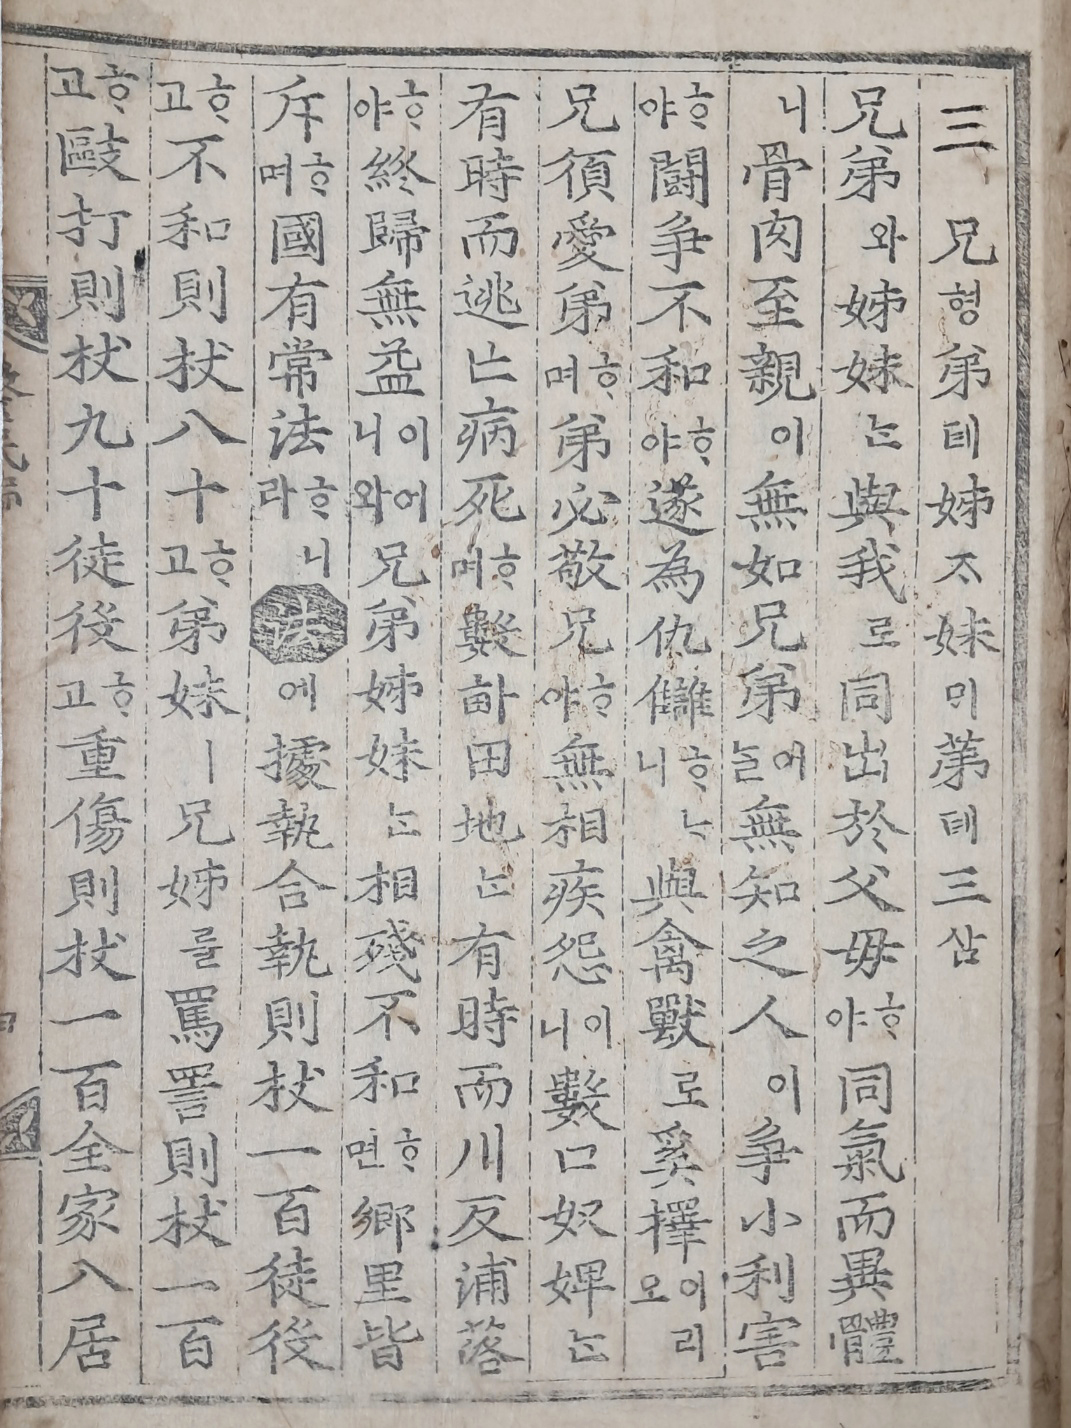 三 兄형弟뎨姊ᄌᆞ妹ᄆᆡ第뎨三삼
兄弟와姊妹ᄂᆞᆫ與我로同出於父母ᄒᆞ야同氣而異體
니骨肉至親이無如兄弟어ᄂᆞᆯ無知之人이爭小利害
ᄒᆞ야鬪爭不和ᄒᆞ야遂為仇讎ᄒᆞᄂᆞ니與禽獸로奚擇이리오
兄須愛弟ᄒᆞ며弟必敬兄ᄒᆞ야無相疾怨이니數口奴婢ᄂᆞᆫ
有時而逃亡病死ᄒᆞ며數畝田地ᄂᆞᆫ有時而川反浦落
ᄒᆞ야終歸無益이어니와兄弟姊妹ᄂᆞᆫ相殘不和ᄒᆞ면鄉里皆
斥ᄒᆞ며國有常法ᄒᆞ니라法에據執合執則杖一百徒役
ᄒᆞ고不和則杖八十ᄒᆞ고弟妹ㅣ兄姊ᄅᆞᆯ罵詈則杖一百
ᄒᆞ고毆打則杖九十徒役ᄒᆞ고重傷則杖一百全家入居